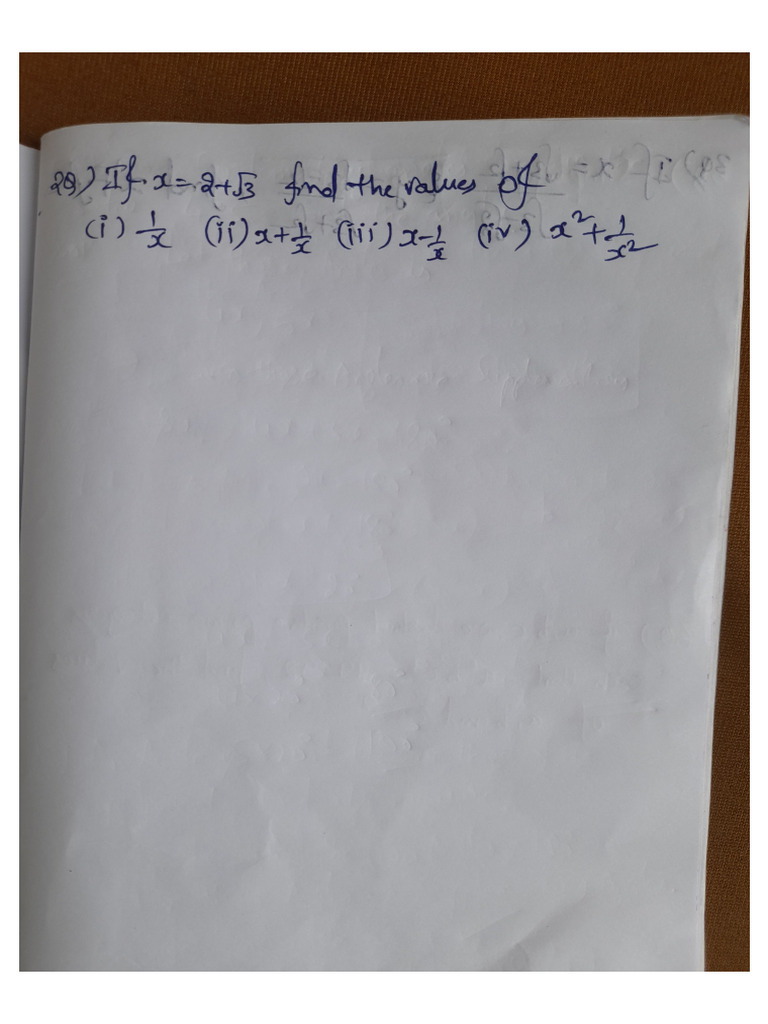 29) If x = 2+√3 find the values of
(i) 1/x (ii) x+1/x (iii) x-1/x (iv) x²+1/x²